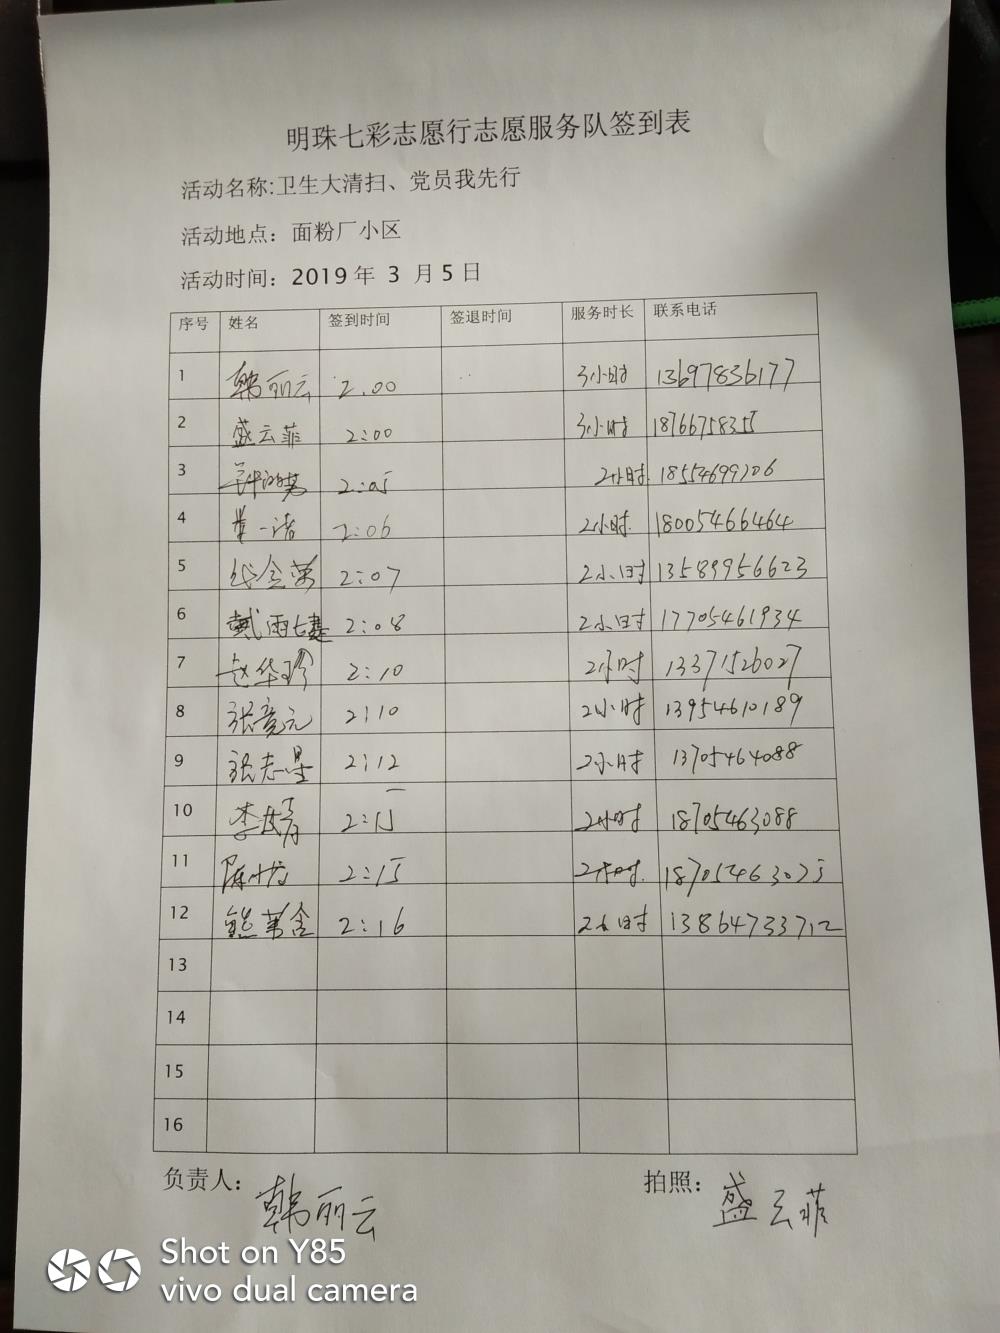 明珠七彩志愿行志愿服务队签到表
活动名称:卫生大清扫、党员我先行
活动地点：面粉厂小区
活动时间：2019 年 3 月 5 日
序号 姓名 签到时间 签退时间 服务时长 联系电话
1 韩丽云 2.00 3小时 13697836177
2 盛云菲 2:00 3小时 18766758355
3 2:05 2小时 18554699206
4 2:06 2小时 18005466464
5 2:07 2小时 13589956623
6 戴雨 2:08 2小时 17705461934
7 赵华珍 2:10 2小时 13371526027
8 张竟元 2:10 2小时 13954610189
9 张志星 2:12 2小时 13705464088
10 李 2:15 2小时 18705463088
11 陈 2:15 2小时 18705463025
12 熊 2:16 2小时 13864733712
13
14
15
16
负责人：韩丽云 拍照：盛云菲
Shot on Y85
vivo dual camera